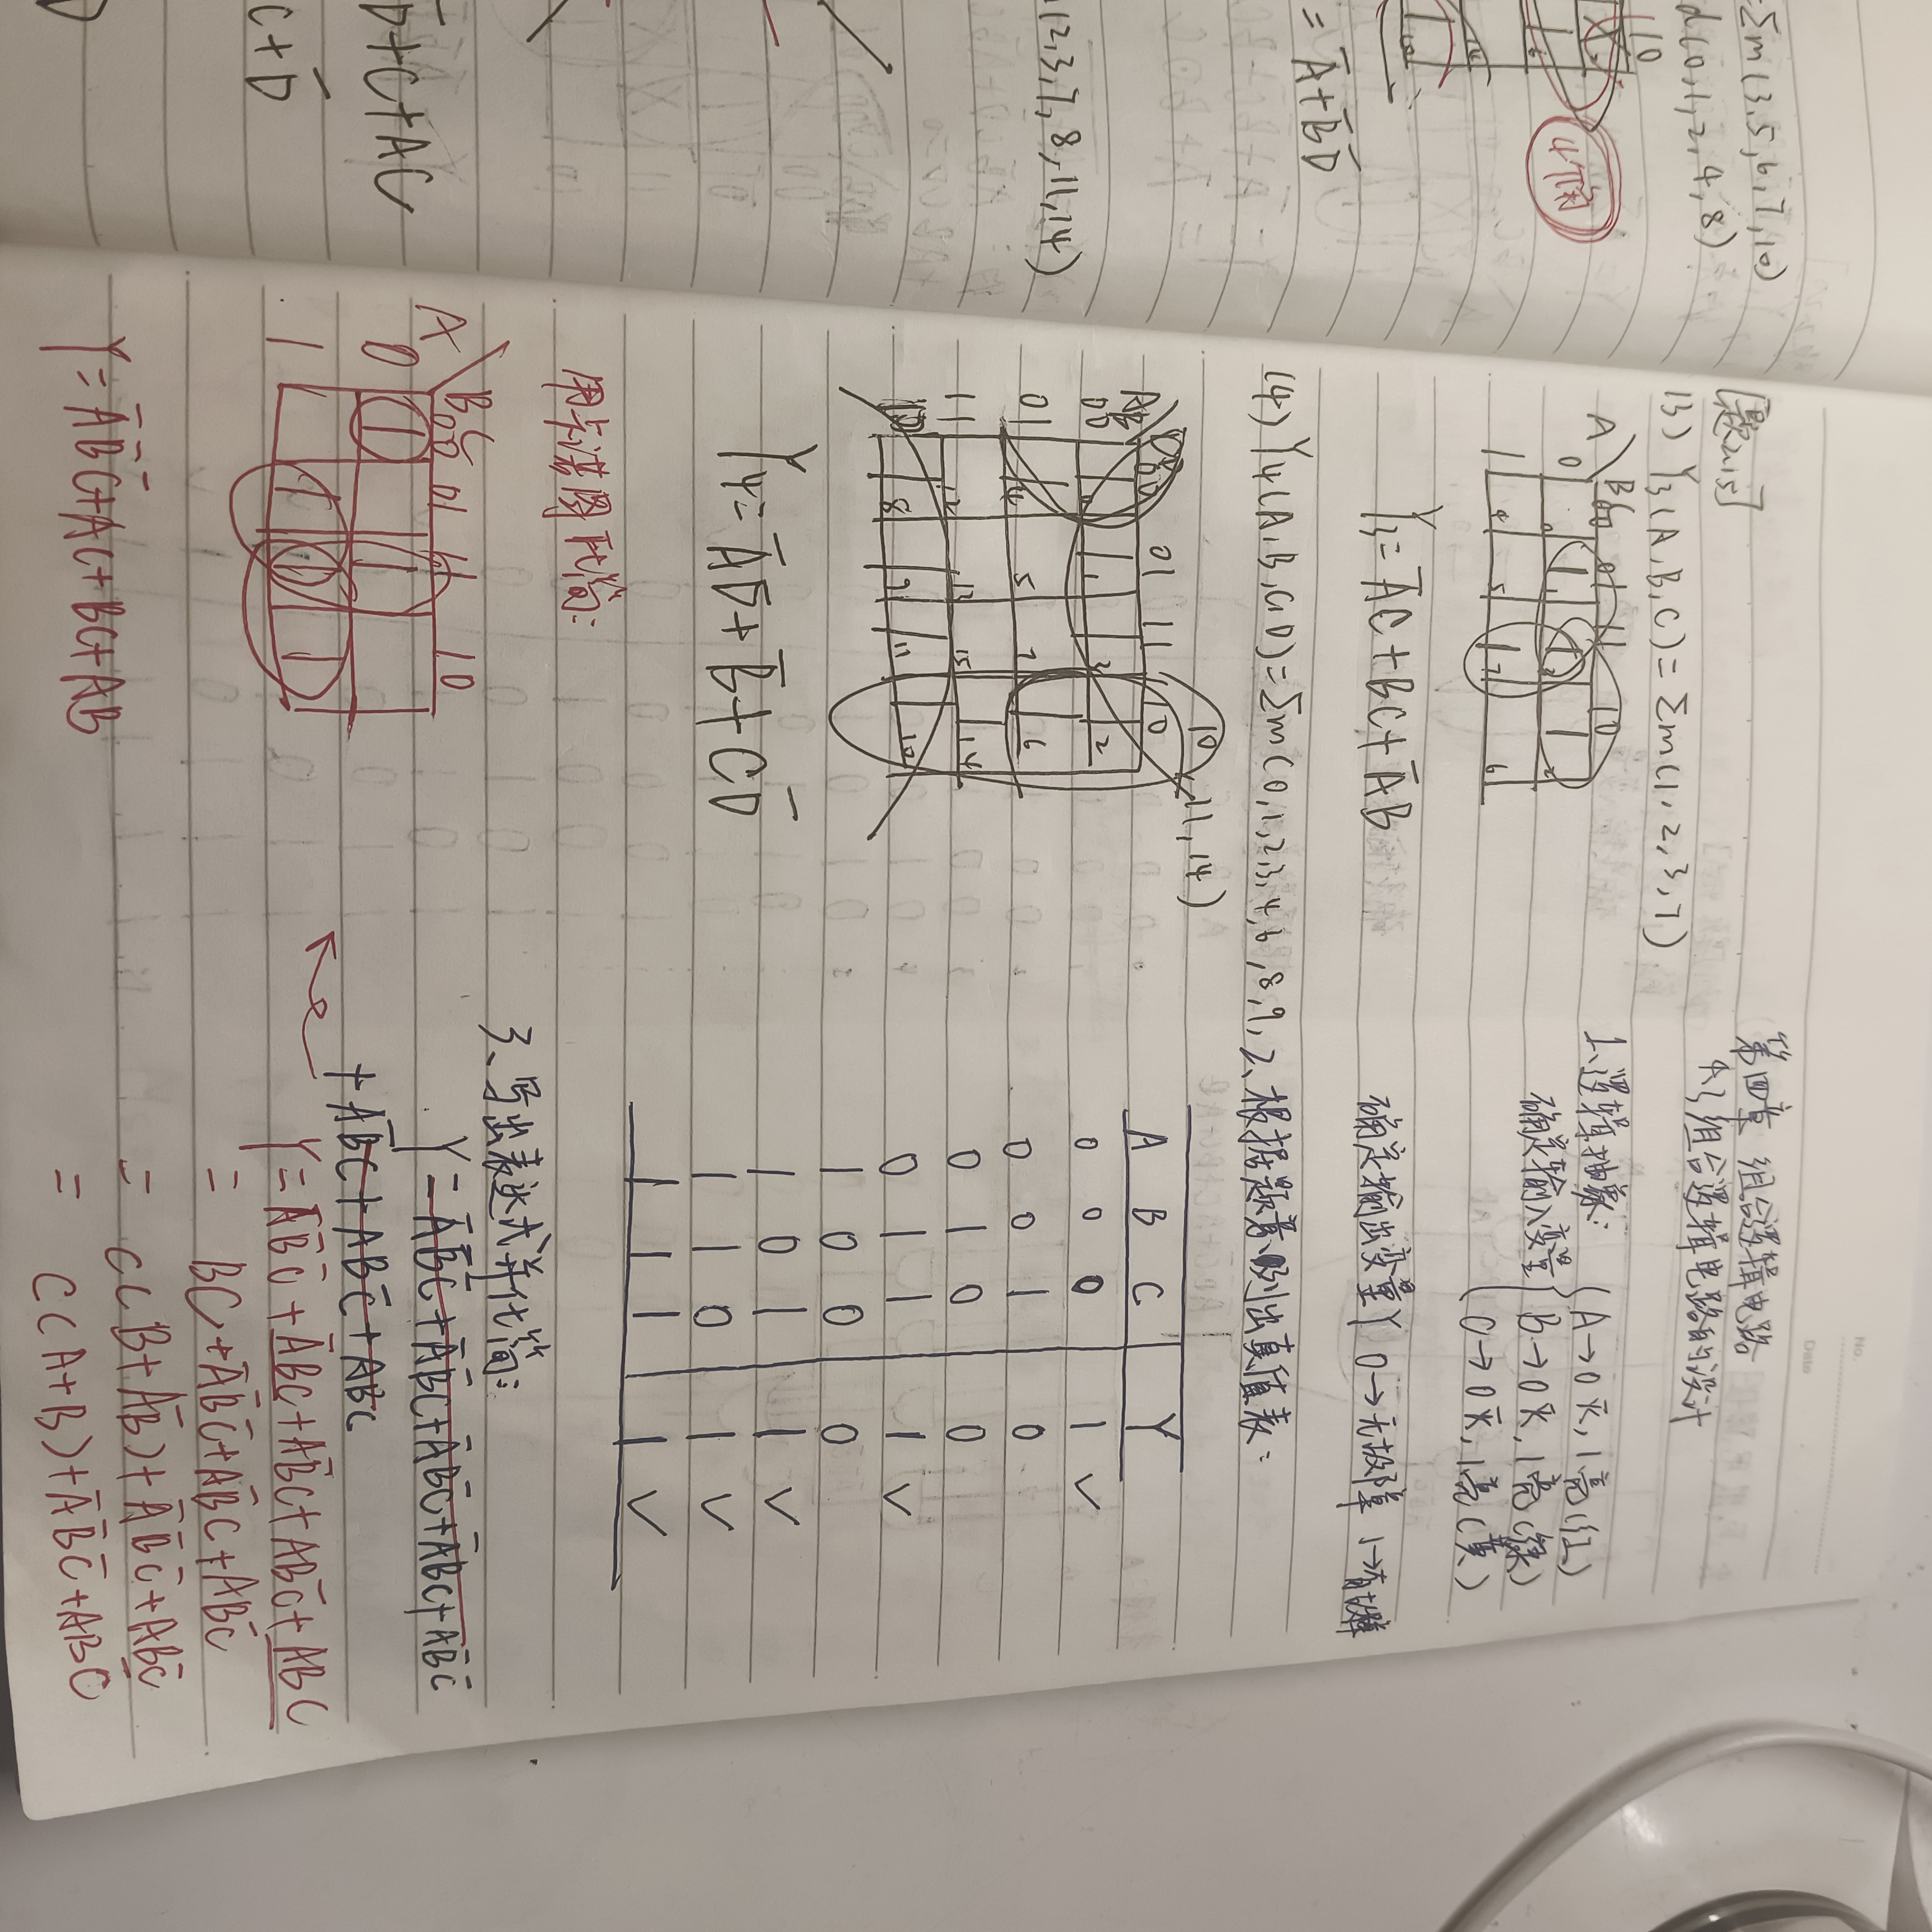 =Σm(3,5,6,7,10)
d(0,1,2,4,8)
10
4个角
= A̅+B̅D̅
(2,3,7,8,11,14)
D̅+C+AC
C+D̅
No.
Date
[题2.15]
(3) Y3(A,B,C)=Σm(1,2,3,7)
A BC 00 01 11 10
0 0 1 1 1 3 1 2
1 4 5 1 7 6
Y3=A̅C+BC+A̅B
(4) Y4(A,B,C,D)=Σm(0,1,2,3,4,6,8,9,
10,11,14)
AB 00 01 11 10
00 1 0 1 1 1 3 1 2
01 1 4 5 7 1 6
11 12 13 15 1 14
10 1 8 1 9 1 11 1 10
Y4=A̅D̅+B̅+CD̅
用卡诺图化简:
A BC 00 01 11 10
0 1 1
1 1 1 1
Y=A̅B̅C̅+AC+BC+AB
第四章 组合逻辑电路
4.3 组合逻辑电路的设计
1、逻辑抽象:
确定输入变量
A→0灭,1亮(红)
B→0灭,1亮(绿)
C→0灭,1亮(黄)
确定输出变量Y 0→无故障 1→有故障
2、根据题意列出真值表:
A B C Y
0 0 0 1 ✓
0 0 1 0
0 1 0 0
0 1 1 1 ✓
1 0 0 0
1 0 1 1 ✓
1 1 0 1 ✓
1 1 1 1 ✓
3、写出表达式并化简:
Y=A̅B̅C̅+A̅B̅C+A̅BC̅+A̅BC+AB̅C̅
+AB̅C+ABC̅+ABC
Y=A̅B̅C̅+A̅BC+AB̅C+ABC̅+ABC
= BC+A̅B̅C̅+AB̅C+ABC̅
= C(B+AB̅)+A̅B̅C̅+ABC̅
= C(A+B)+A̅B̅C̅+ABC̅